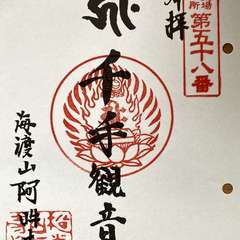 奉拝
所場
第五十八番
千手観音
海渡山阿